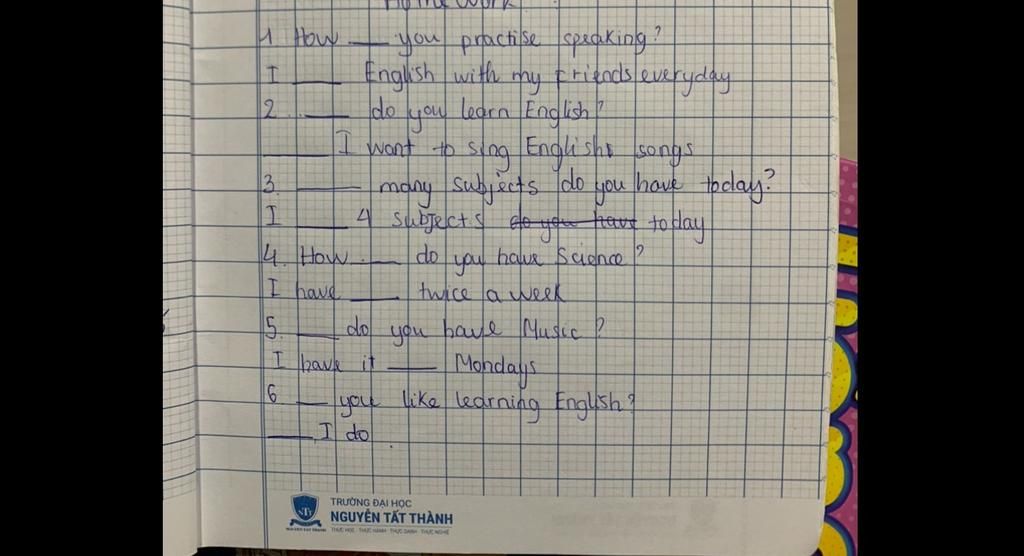 Home Work
1. How ___ you practise speaking?
I ___ English with my friends everyday
2. ___ do you learn English?
___ I want to sing English songs
3. ___ many subjects do you have today?
I ___ 4 subjects do you have today
4. How ___ do you have Science?
I have ___ twice a week
5. ___ do you have Music?
I have it ___ Mondays
6 ___ you like learning English?
___ I do.
TRƯỜNG ĐẠI HỌC
NGUYỄN TẤT THÀNH
THỰC HỌC - THỰC HÀNH - THỰC DANH - THỰC NGHIỆP
NTT
NGUYEN TAT THANH